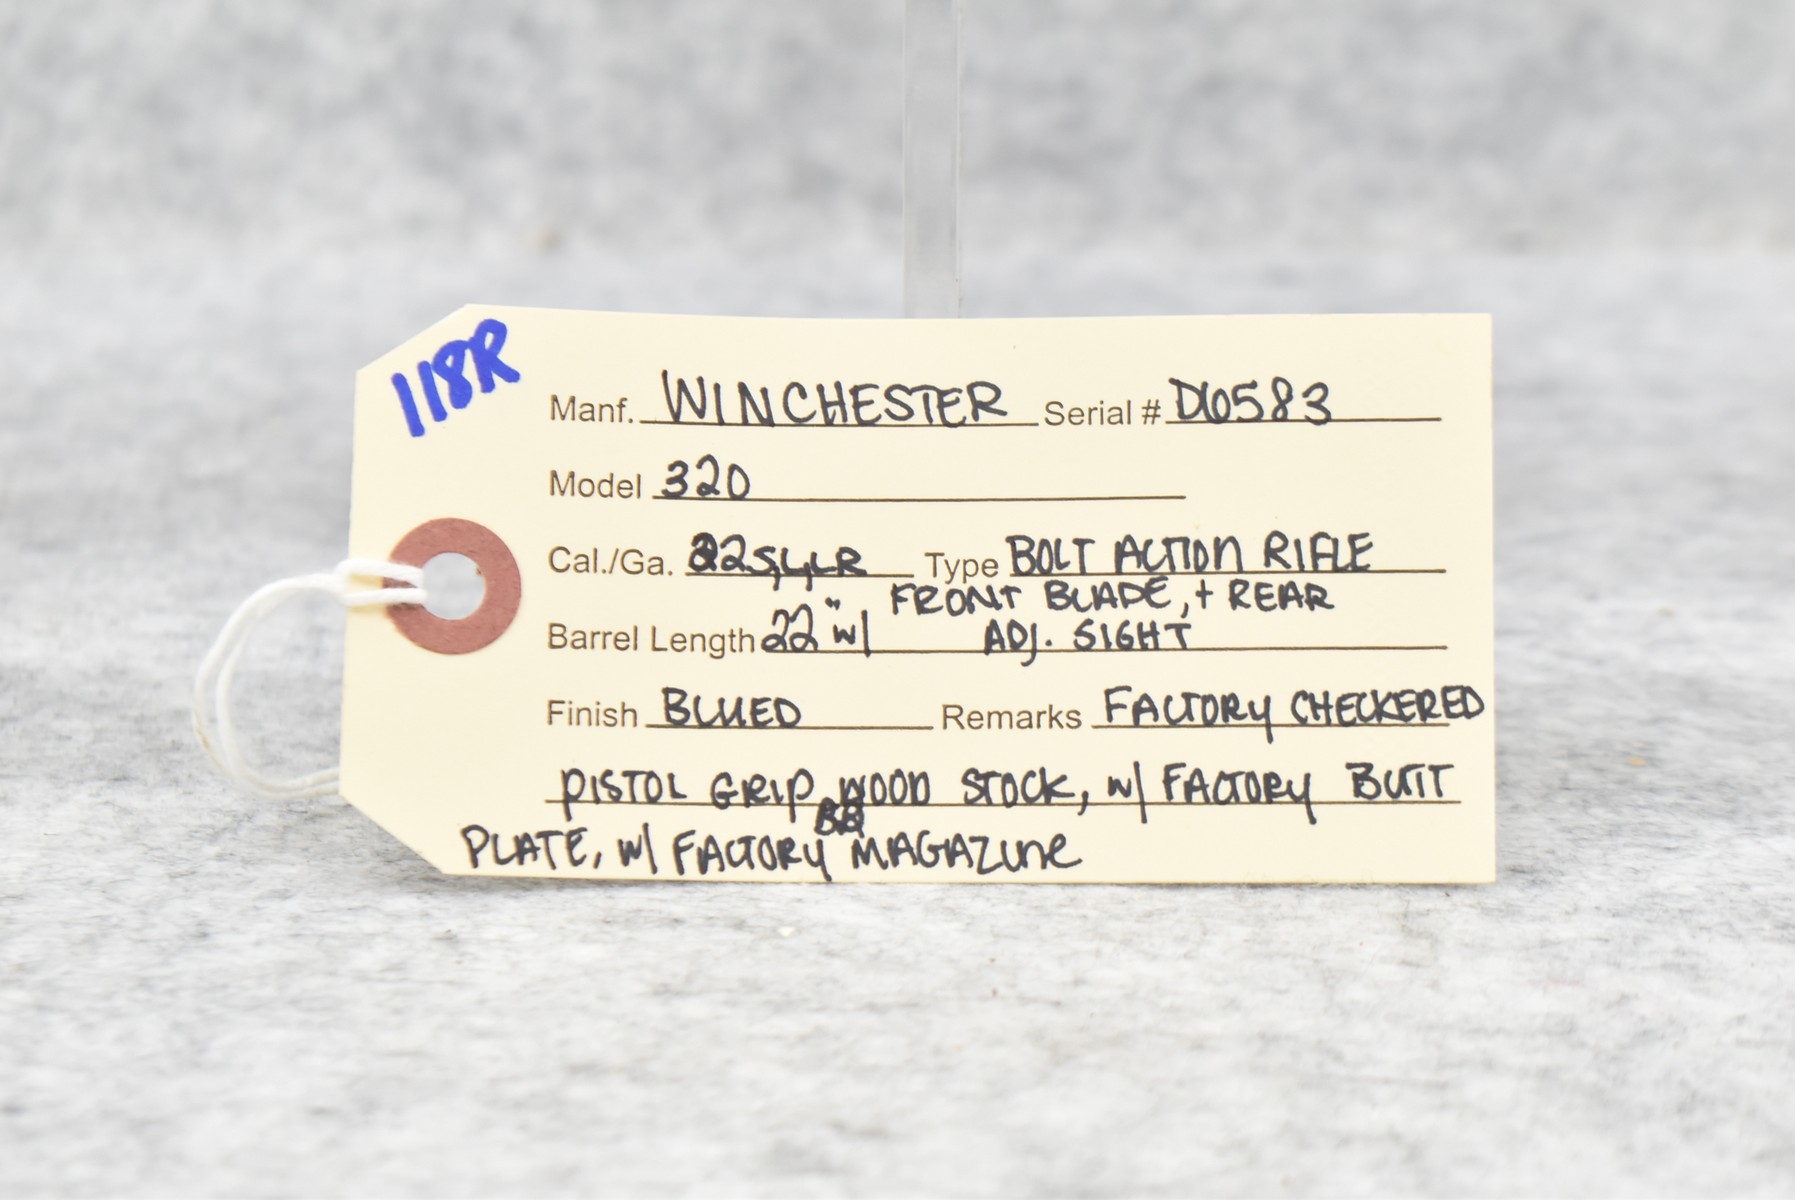 118R
Manf. WINCHESTER Serial # D6583
Model 320
Cal./Ga. 22S,L,LR Type BOLT ACTION RIFLE
FRONT BLADE, + REAR
Barrel Length 22" w/ ADJ. SIGHT
Finish BLUED Remarks FACTORY CHECKERED
PISTOL GRIP WOOD STOCK, w/ FACTORY BUTT
PLATE, w/ FACTORY MAGAZINE